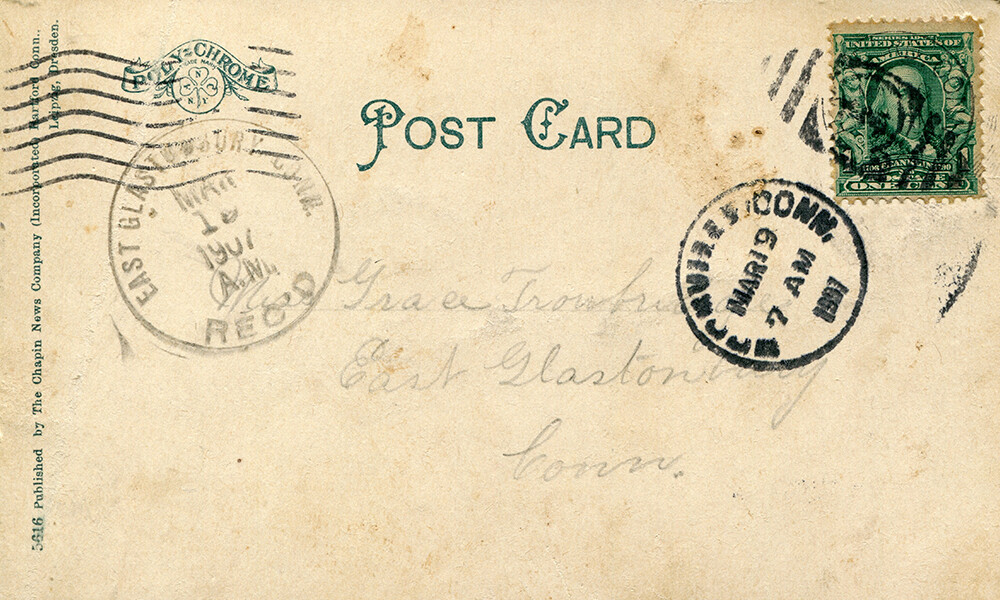 POLY-CHROME
TRADE MARK
N
N.Y.
POST CARD
SERIES 1902
UNITED STATES OF
AMERICA
FRANKLIN
1
ONE CENT
EAST GLASTONBURY, CONN.
MAR
1907
A.M.
REC'D
CONN.
MAR 19
7 AM
1907
Grace Trowbridge
East Glastonbury
Conn.
5616 Published by The Chapin News Company (Incorporated) Hartford Conn.,
Leipzig, Dresden.